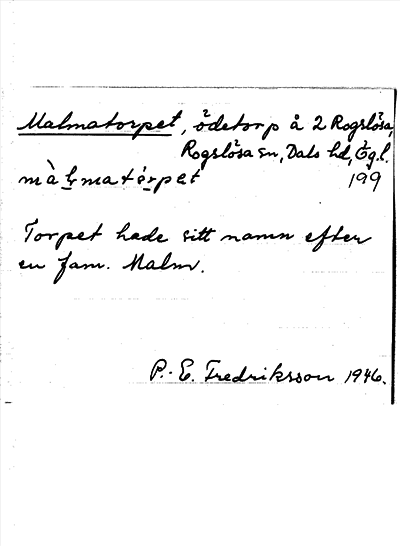 Malmatorpet, ödetorp å 2 Rogslösa,
Rogslösa sn, Dals hd, Ög.l.
màl̥matórpet 199
Torpet hade sitt namn efter
en fam. Malm.
P.-E. Fredriksson 1946.